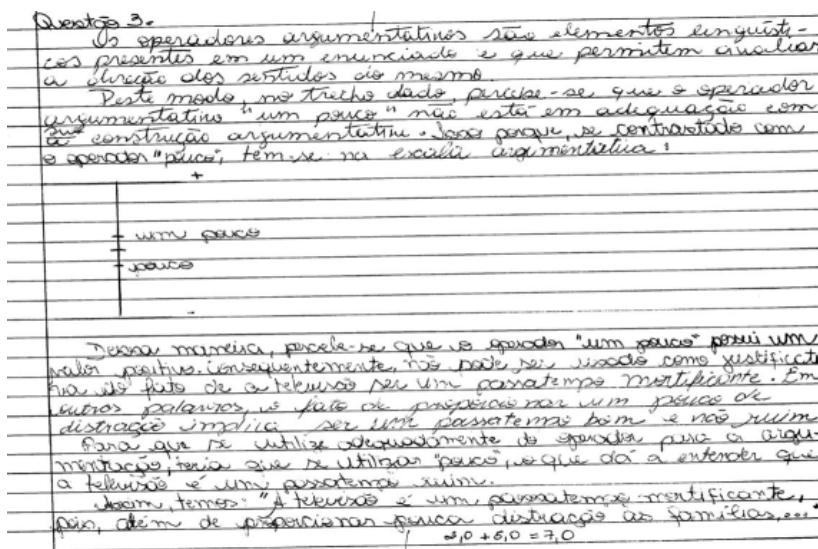 Questão 3.
Os operadores argumentativos são elementos linguísti-
cos presentes em um enunciado e que permitem avaliar
a direção dos sentidos do mesmo.
Deste modo, no trecho dado, percebe-se que o operador
argumentativo "um pouco" não está em adequação com
sua construção argumentativa. Isso porque, se contrastado com
o operador "pouco", tem-se na escala argumentativa:
+
um pouco
pouco
-
Dessa maneira, percebe-se que o operador "um pouco" possui um
valor positivo. Consequentemente, não pode ser usado como justificati-
va do fato de a televisão ser um passatempo mortificante. Em
outras palavras, o fato de proporcionar um pouco de
distração implica ser um passatempo bom e não ruim
Para que se utilize adequadamente do operador para a argu-
mentação, teria que se utilizar "pouco", o que dá a entender que
a televisão é um passatempo ruim.
Assim, temos: "A televisão é um passatempo mortificante,
pois, além de proporcionar pouca distração às famílias,..."
2,0 + 5,0 = 7,0